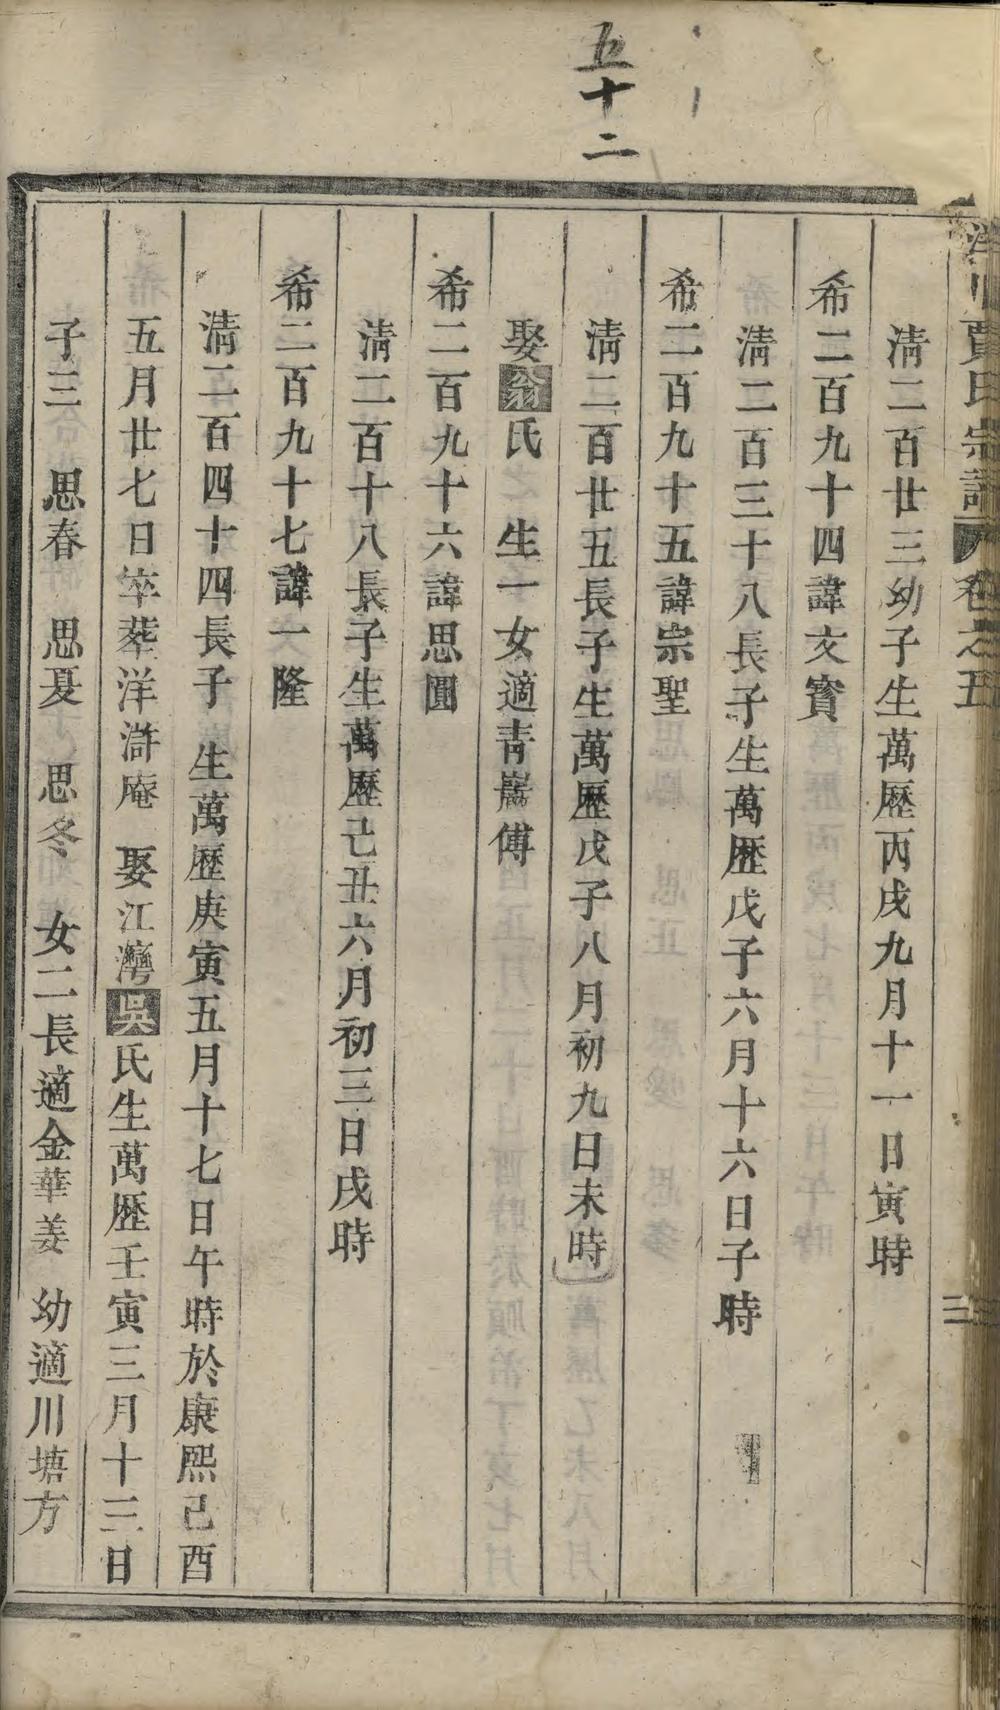 五十二
賈氏宗譜 卷之五
三
清二百廿三幼子生萬歷丙戌九月十一日寅時
希二百九十四諱文寳
清二百三十八長子生萬歷戊子六月十六日子時
希二百九十五諱宗聖
清二百廿五長子生萬歷戊子八月初九日未時
娶翁氏 生一女適青巖傅
希二百九十六諱思圓
清二百十八長子生萬歷己丑六月初三日戌時
希二百九十七諱一隆
清二百四十四長子 生萬歷庚寅五月十七日午時於康熙己酉
五月廿七日卒葬洋滸庵 娶江灣吳氏生萬歷壬寅三月十三日
子三 思春 思夏 思冬 女二長適金華姜 幼適川塘方